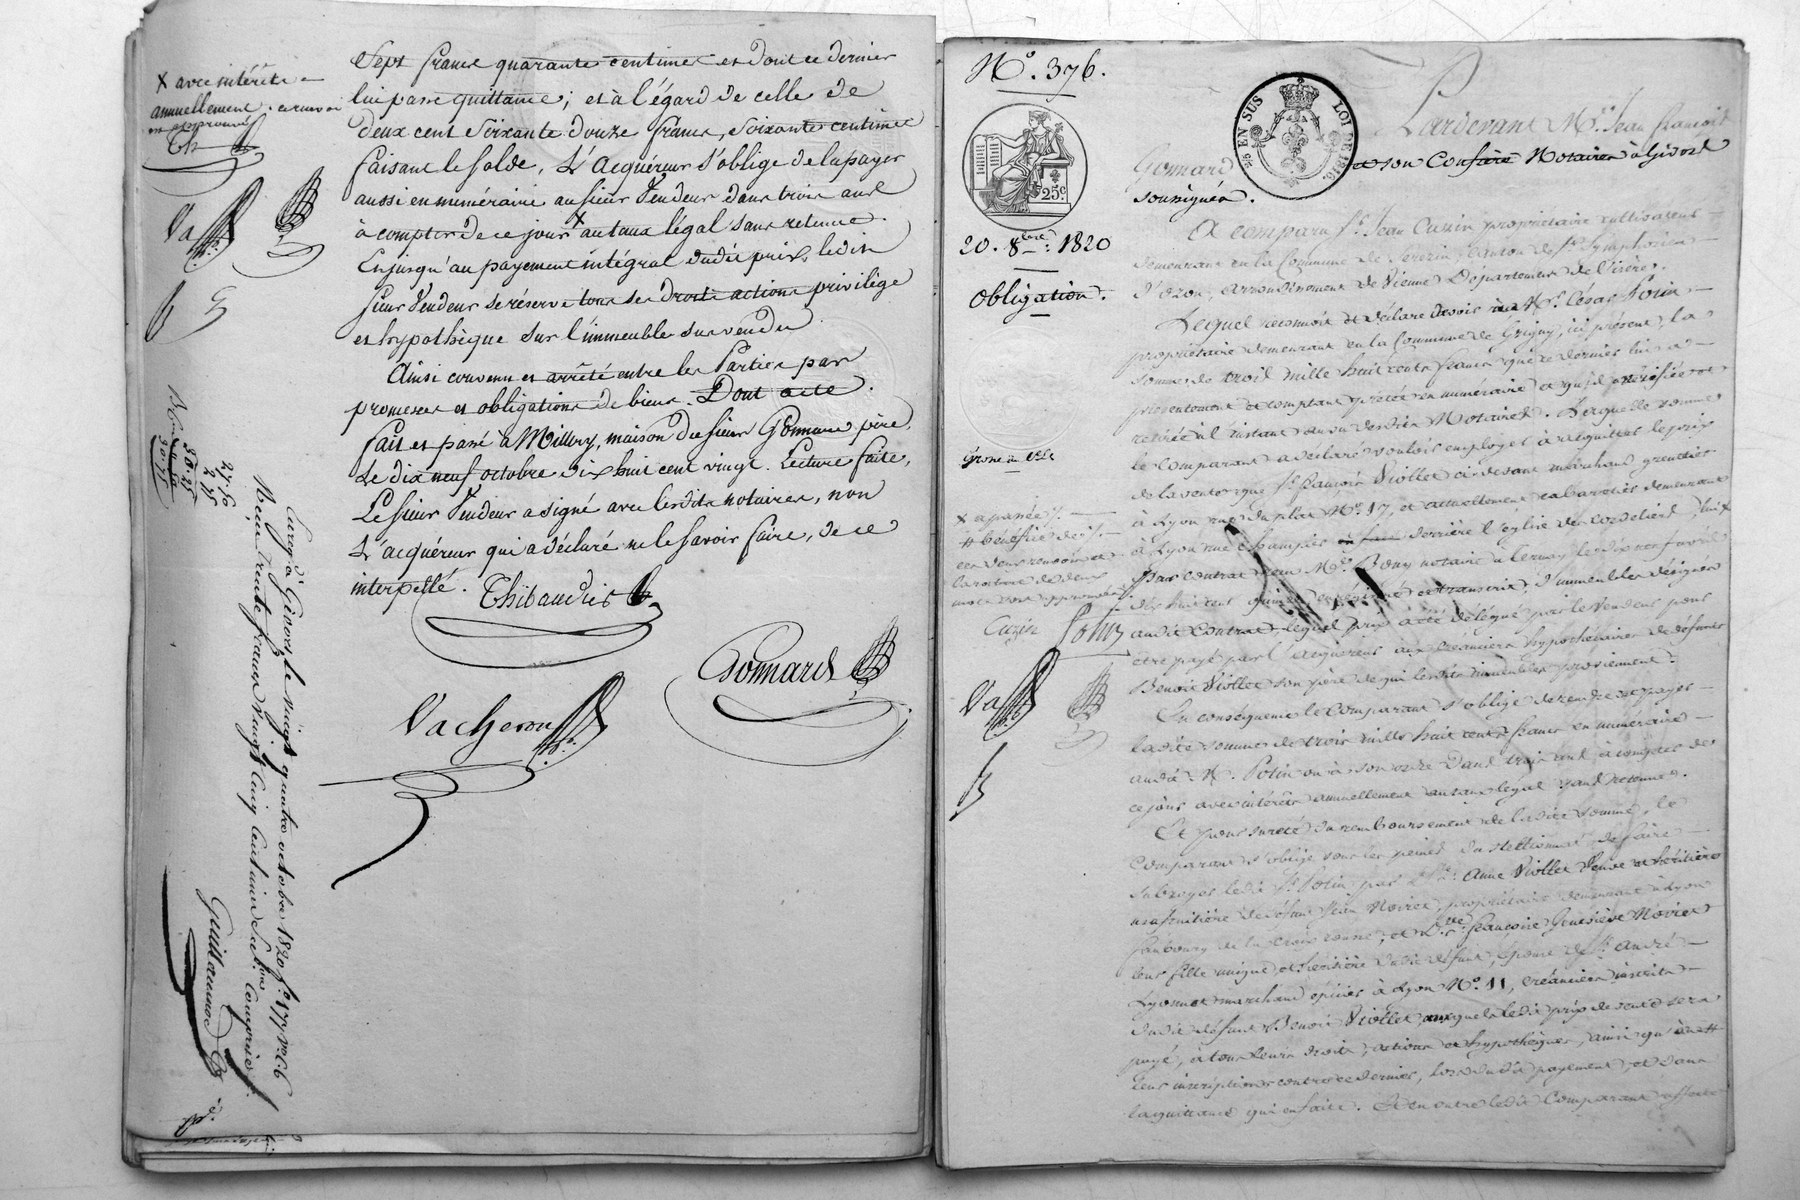 Sept francs quarante centimes et dont ce dernier
lui passe quittance; et à l'égard de celle de
deux cent soixante douze francs, soixante centimes
faisant le solde, L'acquéreur s'oblige de la payer
aussi en numéraire au sieur Vendeur dans trois ans
à compter de ce jour x au taux légal sans retenue.
Et jusqu'au payement intégral dudit prix, ledit
sieur Vendeur se réserve tous ses droits actions privilège
et hypothèque sur l'immeuble sus vendu
Ainsi convenu et arrêté entre les Parties par
promesses et obligations de biens. Dont acte.
fait et passé à Millery, maison du sieur Gonnard père,
Le dix neuf octobre dix huit cent vingt. Lecture faite,
Le sieur Vendeur a signé avec lesdits notaires, non
L'acquéreur qui a déclaré ne le savoir faire, de ce
interpellé. Thibaudier
Gonnard
Vacheron
x avec intérêts
annuellement. ce renvoi
est approuvé
Th
Va
27. 50
2. 75
30. 25
30. 75
Enrg.é à Givors le vingt quatre octobre 1820 f.o 177 v.o c. 6
Reçu trente francs vingt cinq centimes Sub.on comprise
Guillaumon
N.o 376.
25.c
20. 8bre 1820
Obligation.
25 EN SUS LOI DE 1816.
Pardevant M.e Jean françois
Gonnard et son Confrère Notaires à Givors
soussignés.
A comparu S.r Jean Cuzin propriétaire cultivateur
demeurant en la Commune de Serezin Canton de S.t Symphorien
d'Ozon, arrondissement de Vienne Département de l'isère,
Lequel reconnoit et déclare devoir à M.r César Potin,
propriétaire demeurant en la Commune de Grigny, ici présent, la
somme de trois mille huit cents francs que ce dernier lui a
présentement et comptant prêtée en numéraire et qu'il a vérifiée et
retirée à l'instant au vu desdits Notaires. Laquelle somme
le comparant a déclaré vouloir employer à acquitter le prix
de la vente que S.r françois Viollet ci-devant marchand grenetier
à Lyon rue du plat N.o 17, et actuellement cabaretier demeurant
à Lyon rue Champier derrière l'église des Cordeliers, lui x
par contrat reçu M.e Bony notaire à Ternay le dix neuf avril
dix huit cent quinze enregistré et transcrit, d'immeubles désignés
audit Contrat, lequel prix a été délégué par le Vendeur pour
être payé par l'acquéreur aux créanciers hypothécaires de défunt
Benoit Viollet son père de qui lesdits immeubles proviennent.
En conséquence le comparant s'oblige de rendre et payer
ladite somme de trois mille huit cents francs en numéraire
audit M. Potin ou à son ordre dans trois ans, à compter de
ce jour avec intérêts annuellement au taux légal sans retenue.
Et pour sureté du remboursement de ladite somme, le
Comparant s'oblige sous les peines du stellionat, de faire
subroger ledit S.r Potin, par D.e Anne Viollet Veuve et héritière
usufruitière de défunt Jean Novier, propriétaire demeurant à Lyon
faubourg de la croix rousse, et D.e françoise Geneviève Novier
leur fille unique et héritière dudit défunt, épouse de S.r André
Lyonnet marchand épicier à Lyon N.o 11, créanciers inscrits
dudit défunt Benoit Viollet auxquels ledit prix de vente sera
payé, à tous leurs droits, actions et hypothèques, ainsi qu'au #
leurs inscriptions contre ce dernier, lors dudit payement et dans
la quittance qui en faite. Et en outre ledit Comparant affecte
Grosse a été
x a passée /.
# bénéfice de /.
ces deux renvois et
la rature de deux
mots sont approuvés
Cuzin Potin
Va